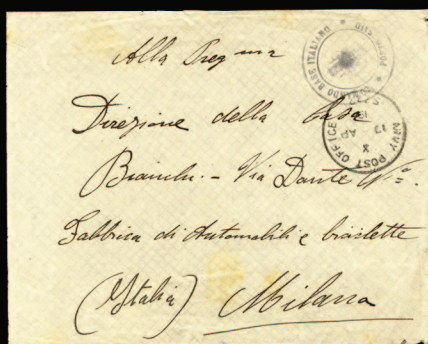 Alla Preg ma
Direzione della Casa
Bianchi - Via Dante No =
Fabbrica di Automobili e biciclette
(Italia) Milano
COMANDO BASE ITALIANO *
ARMY POST OFFICE
X
13 AP